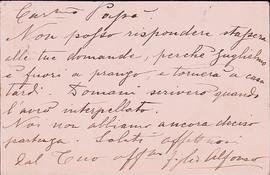 Caro Papà
Non posso rispondere stasera
alle tue domande, perchè Guglielmo
è fuori a pranzo, e tornerà a casa
tardi. Domani scriverò quando
l'avrò interpellato.
Noi non abbiamo ancora deciso
partenza. Saluti affettuosi
dal tuo aff. figlio Alfonso